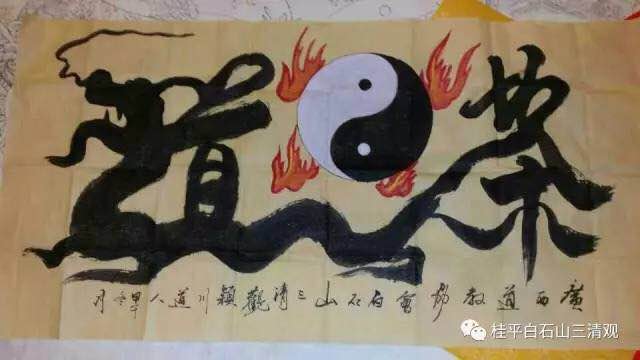 茶道
廣西道教協會白石山三清觀穎川道人甲月
桂平白石山三清观